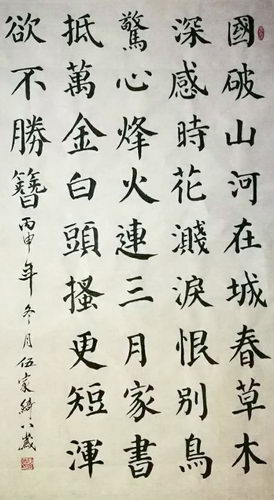 國破山河在城春草木
深感時花濺淚恨別鳥
驚心烽火連三月家書
抵萬金白頭搔更短渾
欲不勝簪
丙申年冬月伍家綺八歲